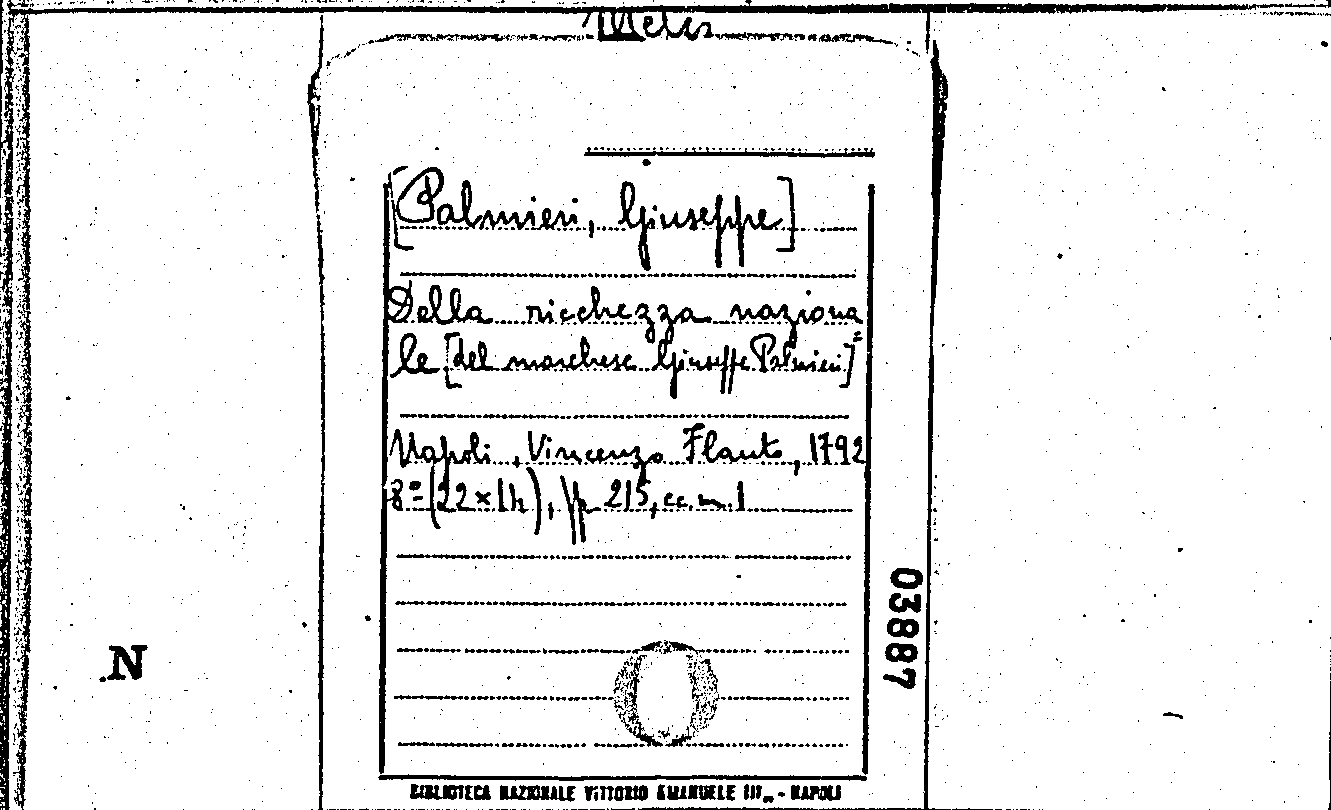 [Palmieri, Giuseppe]
Della ricchezza naziona=
le [del marchese Giuseppe Palmieri]
Napoli, Vincenzo Flauto, 1792
8º (22x14), pp. 215, cc. m. 1
03887
N
BIBLIOTECA NAZIONALE VITTORIO EMANUELE III - NAPOLI